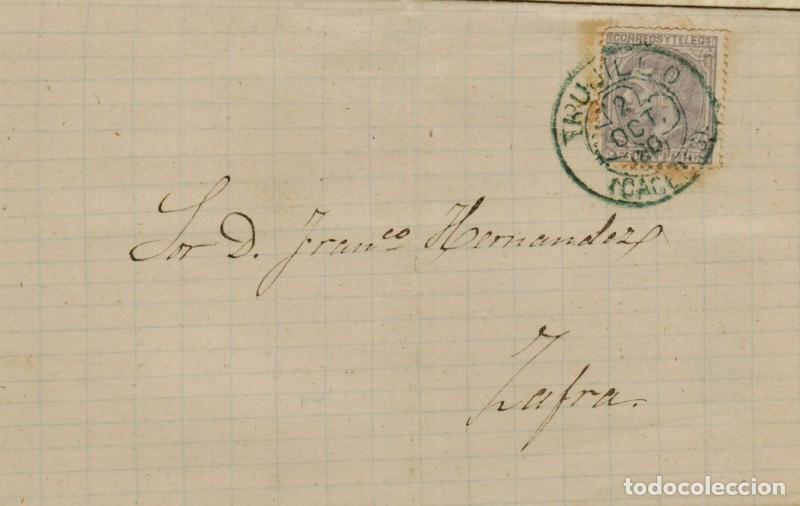 CORREOS Y TELEGS
TRUJILLO
2
OCT.
80
(CACERES)
Sor D. Franco Hernandez
Zafra.
todocoleccion